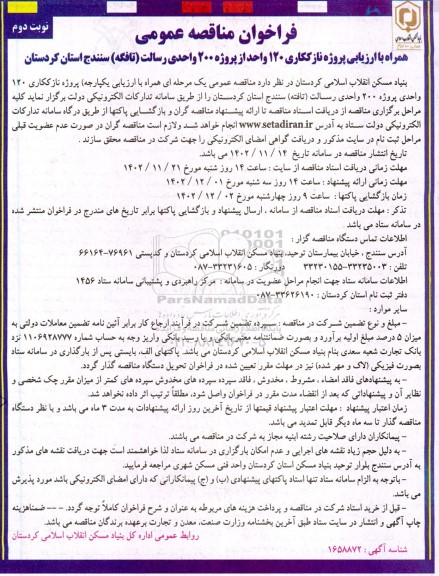 نوبت دوم
فراخوان مناقصه عمومی
همراه با ارزیابی پروژه نازک‌کاری ۱۲۰ واحد از پروژه ۲۰۰ واحدی رسالت (تافگه) سنندج استان کردستان
بنیاد مسکن انقلاب اسلامی کردستان در نظر دارد مناقصه عمومی یک مرحله ای همراه با ارزیابی یکپارچه) پروژه نازککاری ۱۲۰
واحدی پروژه ۲۰۰ واحدی رسالت (تافته) سنندج استان کردستان را از طریق سامانه تدارکات الکترونیکی دولت برگزار نماید کلیه
مراحل برگزاری مناقصه از دریافت اسناد مناقصه تا ارائه پیشنهاد مناقصه گران و بازگشایی پاکتها از طریق درگاه سامانه تدارکات
الکترونیکی دولت ستاد به آدرس www.setadiran.ir انجام خواهد شد ولازم است مناقصه گران در صورت عدم عضویت قبلی
مراحل ثبت نام در سایت مذکور و دریافت گواهی امضای الکترونیکی را جهت شرکت در مناقصه محقق سازند .
تاریخ انتشار مناقصه در سامانه تاریخ ۱۴ / ۱۱ / ۱۴۰۲ می باشد.
مهلت زمانی دریافت اسناد مناقصه از سایت : ساعت ۱۴ روز شنبه مورخ ۲۱ / ۱۱ / ۱۴۰۲
مهلت زمانی ارائه پیشنهاد : ساعت ۱۴ روز سه شنبه مورخ ۰۱ / ۱۲ / ۱۴۰۲
زمان بازگشایی پاکتها : ساعت ۹ روز چهارشنبه مورخ ۰۲ / ۱۲ / ۱۴۰۲
تذکر : مهلت دریافت اسناد مناقصه از سامانه ، ارسال پیشنهاد و بازگشایی پاکتها برابر تاریخ های مندرج در فراخوان منتشر شده
در سامانه ستاد می باشد .
اطلاعات تماس دستگاه مناقصه گزار :
آدرس سنندج ، خیابان بیمارستان توحید، بنیاد مسکن انقلاب اسلامی کردستان و کدپستی ۷۶۹۶۱-۶۶۱۶۴
تلفن : ۳۳۲۳۵۰۰۳-۳۳۲۳۰۱۵۵ دورنگار : ۳۳۲۳۱۶۰۵-۰۸۷
اطلاعات سامانه ستاد جهت انجام مراحل عضویت در سامانه : مرکز راهبردی و پشتیبانی سامانه ستاد ۱۴۵۶
دفتر ثبت نام استان کردستان : ۳۳۶۲۶۱۹۰-۰۸۷
سایر موارد :
- مبلغ و نوع تضمین شرکت در مناقصه : سپرده تضمین شرکت در فرآیند ارجاع کار برابر آئین نامه تضمین معاملات دولتی به
میزان ۵ درصد مبلغ اولیه برآورد و بصورت ضمانتنامه معتبر بانکی و یا رسید بانکی واریز وجه به حساب شماره ۱۱۰۶۹۲۸۷۷۷ نزد
بانک تجارت شعبه سعدی بنام بنیاد مسکن انقلاب اسلامی کردستان می باشد. پاکتهای الف، بایستی پس از بارگذاری در سامانه ستاد
بصورت فیزیکی (لاک و مهر شده) نیز در مهلت مقرر تعیین شده در فراخوان تحویل دستگاه مناقصه گذار گردد.
- به پیشنهادهای فاقد امضاء ، مشروط ، مخدوش ، فاقد سپرده سپرده های مخدوش سپرده های کمتر از میزان مقرر چک شخصی و
نظایر آن و پیشنهاداتی که بعد از انقضاء مدت مقرر در فراخوان واصل شود، مطلقاً ترتیب اثر داده نخواهد شد.
زمان اعتبار پیشنهاد : مهلت اعتبار پیشنهاد قیمتها از تاریخ آخرین روز ارائه پیشنهادات به مدت ۳ ماه می باشد و با نظر دستگاه
مناقصه گذار تا سه ماه دیگر قابل تمدید می باشد.
- پیمانکاران دارای صلاحیت رشته ابنیه مجاز به شرکت در مناقصه می باشند.
- به دلیل حجم زیاد نقشه های اجرایی و عدم امکان بارگزاری در سامانه ستاد لذا خواهشمند است جهت دریافت نقشه های مذکور
به آدرس سنندج بلوار توحید بنیاد مسکن استان کردستان واحد فنی مسکن شهری مراجعه فرمایید.
- باتوجه به الزام سامانه ستاد تنها اسناد پاکتهای پیشنهادی (ب) و (ج) پیمانکارانی که دارای امضای الکترونیکی باشد مورد پذیرش
می باشد.
- قبل از خرید اسناد شرکت در مناقصه و پرداخت هزینه های مربوطه به عنوان و شرح فراخوان کاملاً توجه گردد. --- ضمناهزینه
چاپ آگهی و انتشار در سایت ستاد طبق آخرین بخشنامه وزارت صنعت، معدن و تجارت برعهده برندگان مناقصه می باشد.
روابط عمومی اداره کل بنیاد مسکن انقلاب اسلامی کردستان
شناسه آگهی : ۱۶۵۸۸۷۲